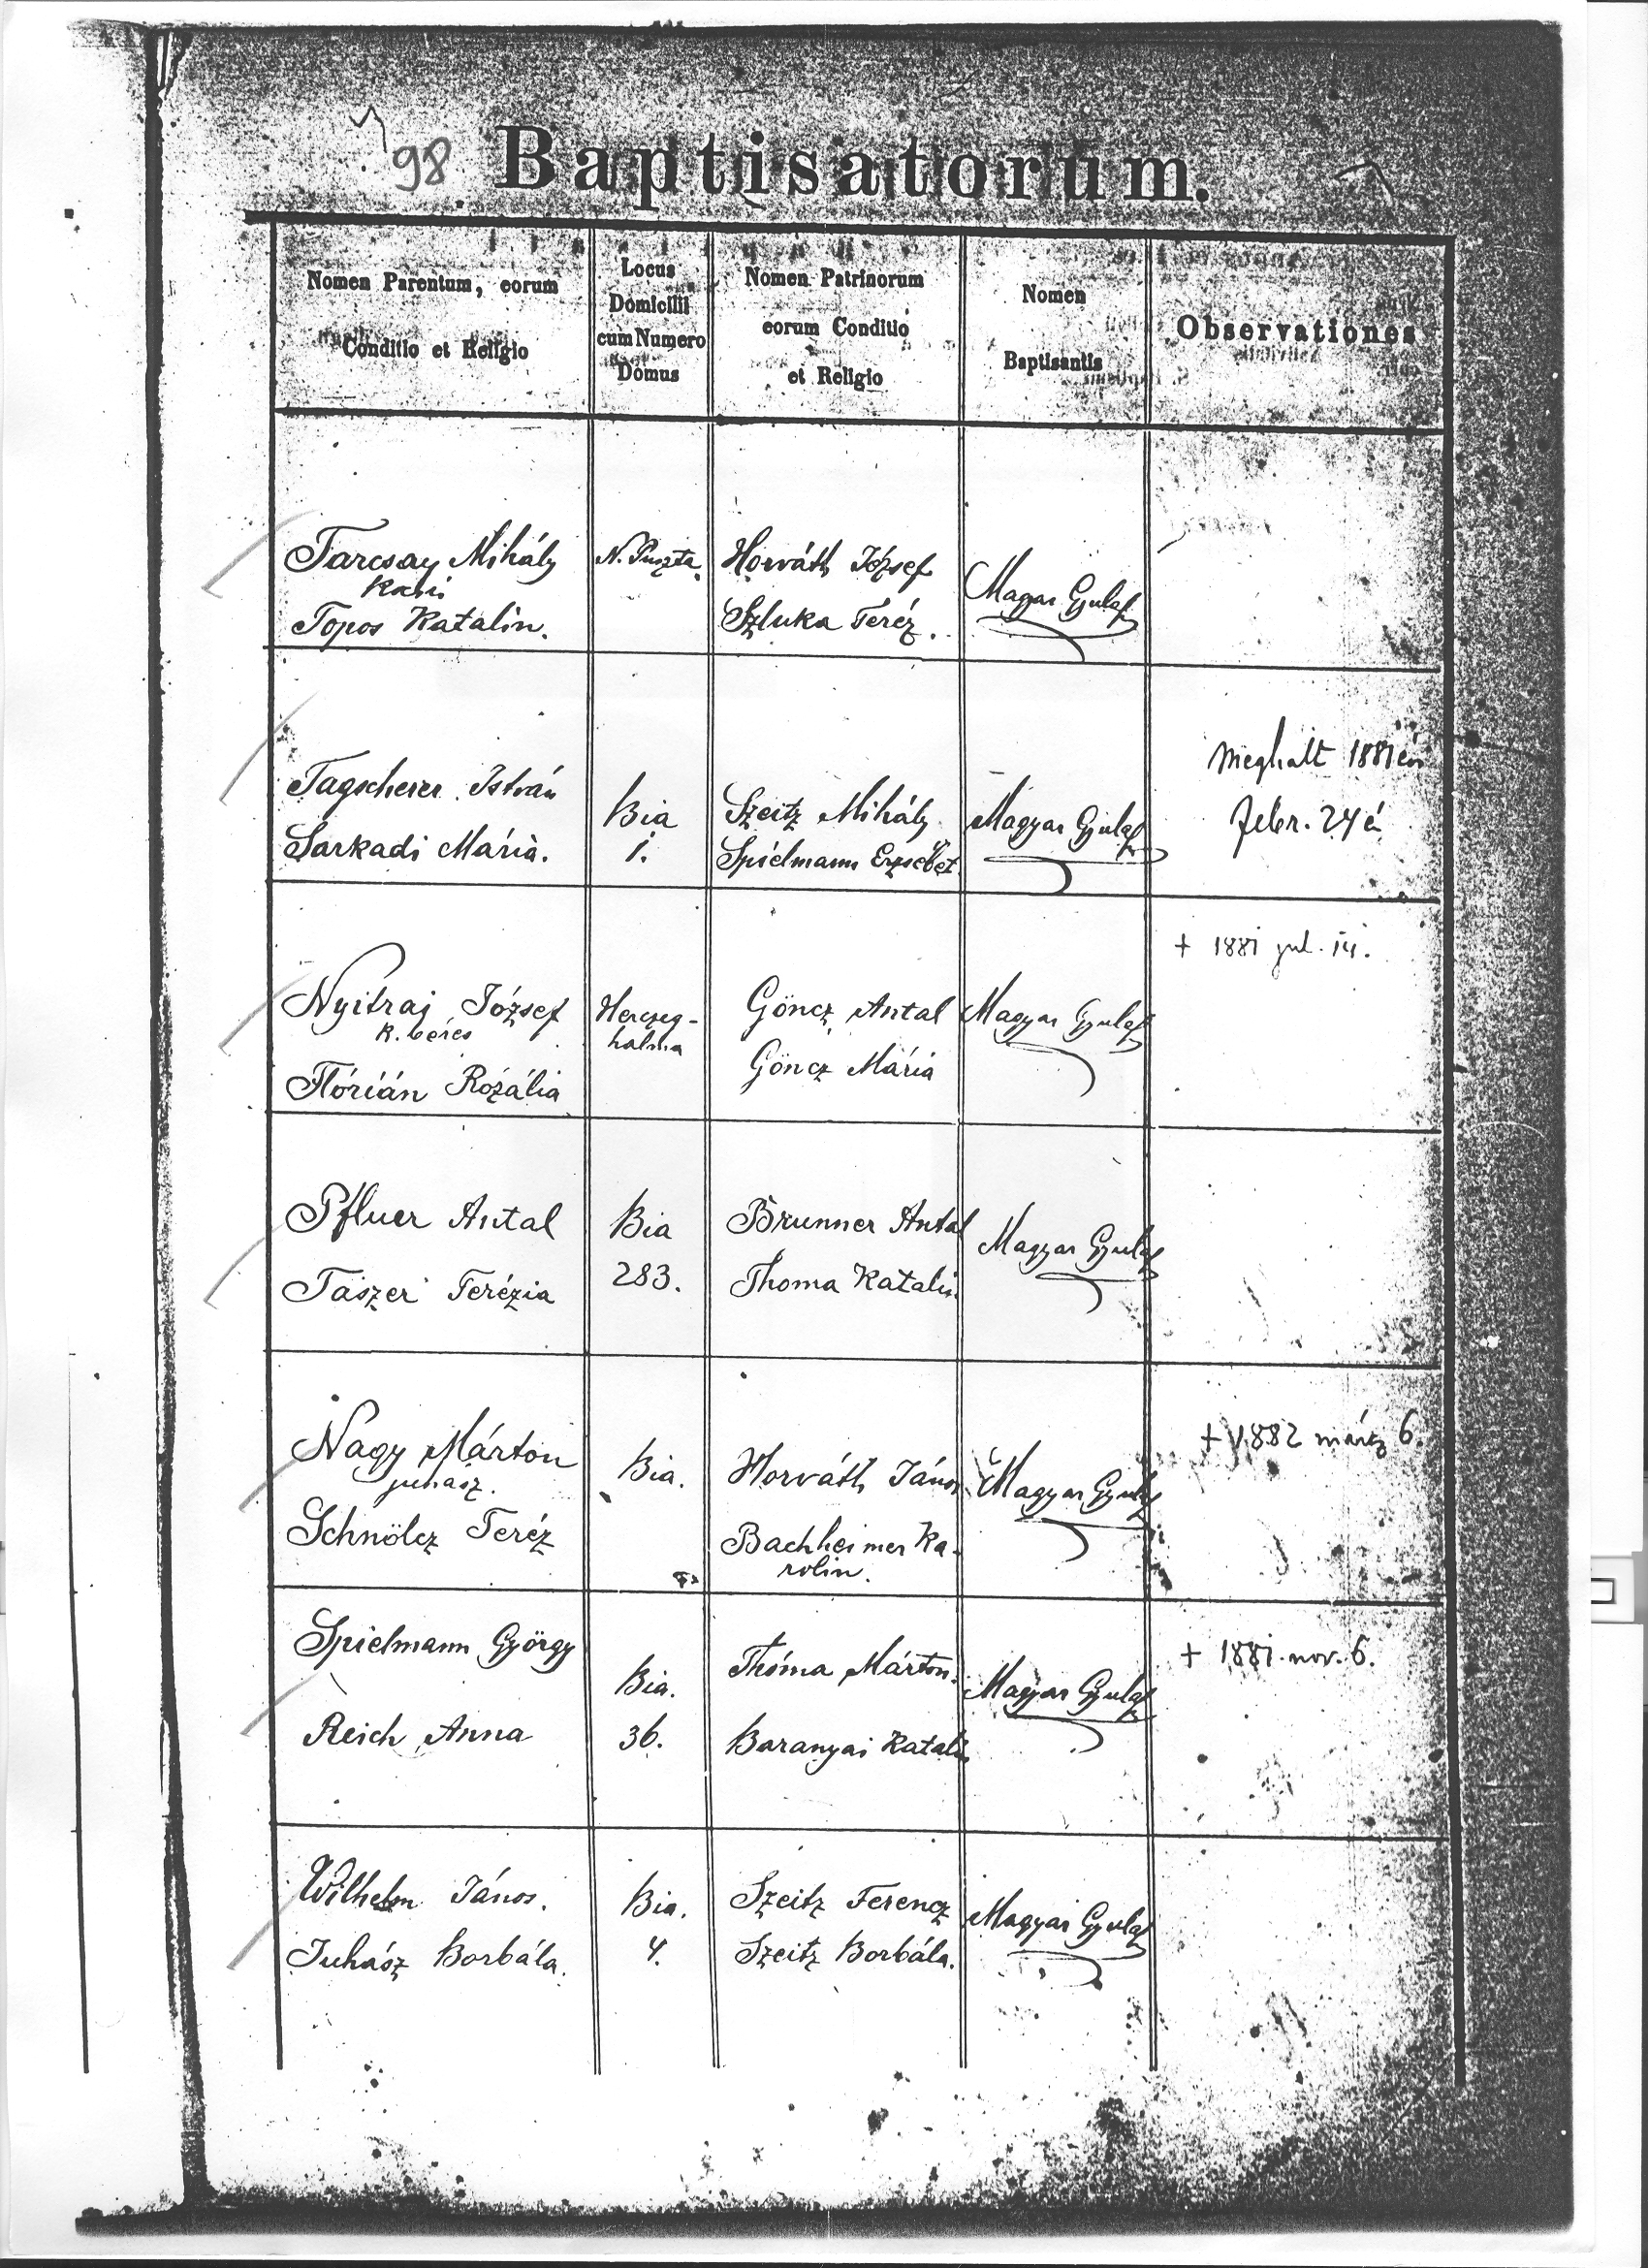 98 Baptisatorum.
Nomen Parentum, eorum
Conditio et Religio
Locus
Domicilii
cum Numero
Domus
Nomen Patrinorum
eorum Conditio
et Religio
Nomen
Baptisantis
Observationes
Tarcsay Mihály
Topos Katalin.
N. Puszta
Horváth József
Szluka Teréz.
Magyar Gyula
Tagscherer István
Sarkadi Mária.
Bia
1.
Szeitz Mihály
Spielmann Erzsébet
Magyar Gyula
Meghalt 1881 év
Febr. 24 é
Nyitrai József
k. béres
Flórián Rozália
Herczeg-
halma
Göncz Antal
Göncz Mária
Magyar Gyula
+ 1881 jul. 14.
Pfluer Antal
Taszer Terézia
Bia
283.
Brunner Antal
Thoma Katalin
Magyar Gyula
Nagy Márton
juhász.
Schnölcz Teréz
Bia.
Horváth János
Bachheimer Ka-
rolin.
Magyar Gyula
+ 1882 márcz 6.
Spielmann György
Reich Anna
Bia.
36.
Thóma Márton.
Baranyai Katalin
Magyar Gyula
+ 1881. nov. 6.
Wilhelm János.
Juhász Borbála.
Bia.
4.
Szeitz Ferencz
Szeitz Borbála.
Magyar Gyula